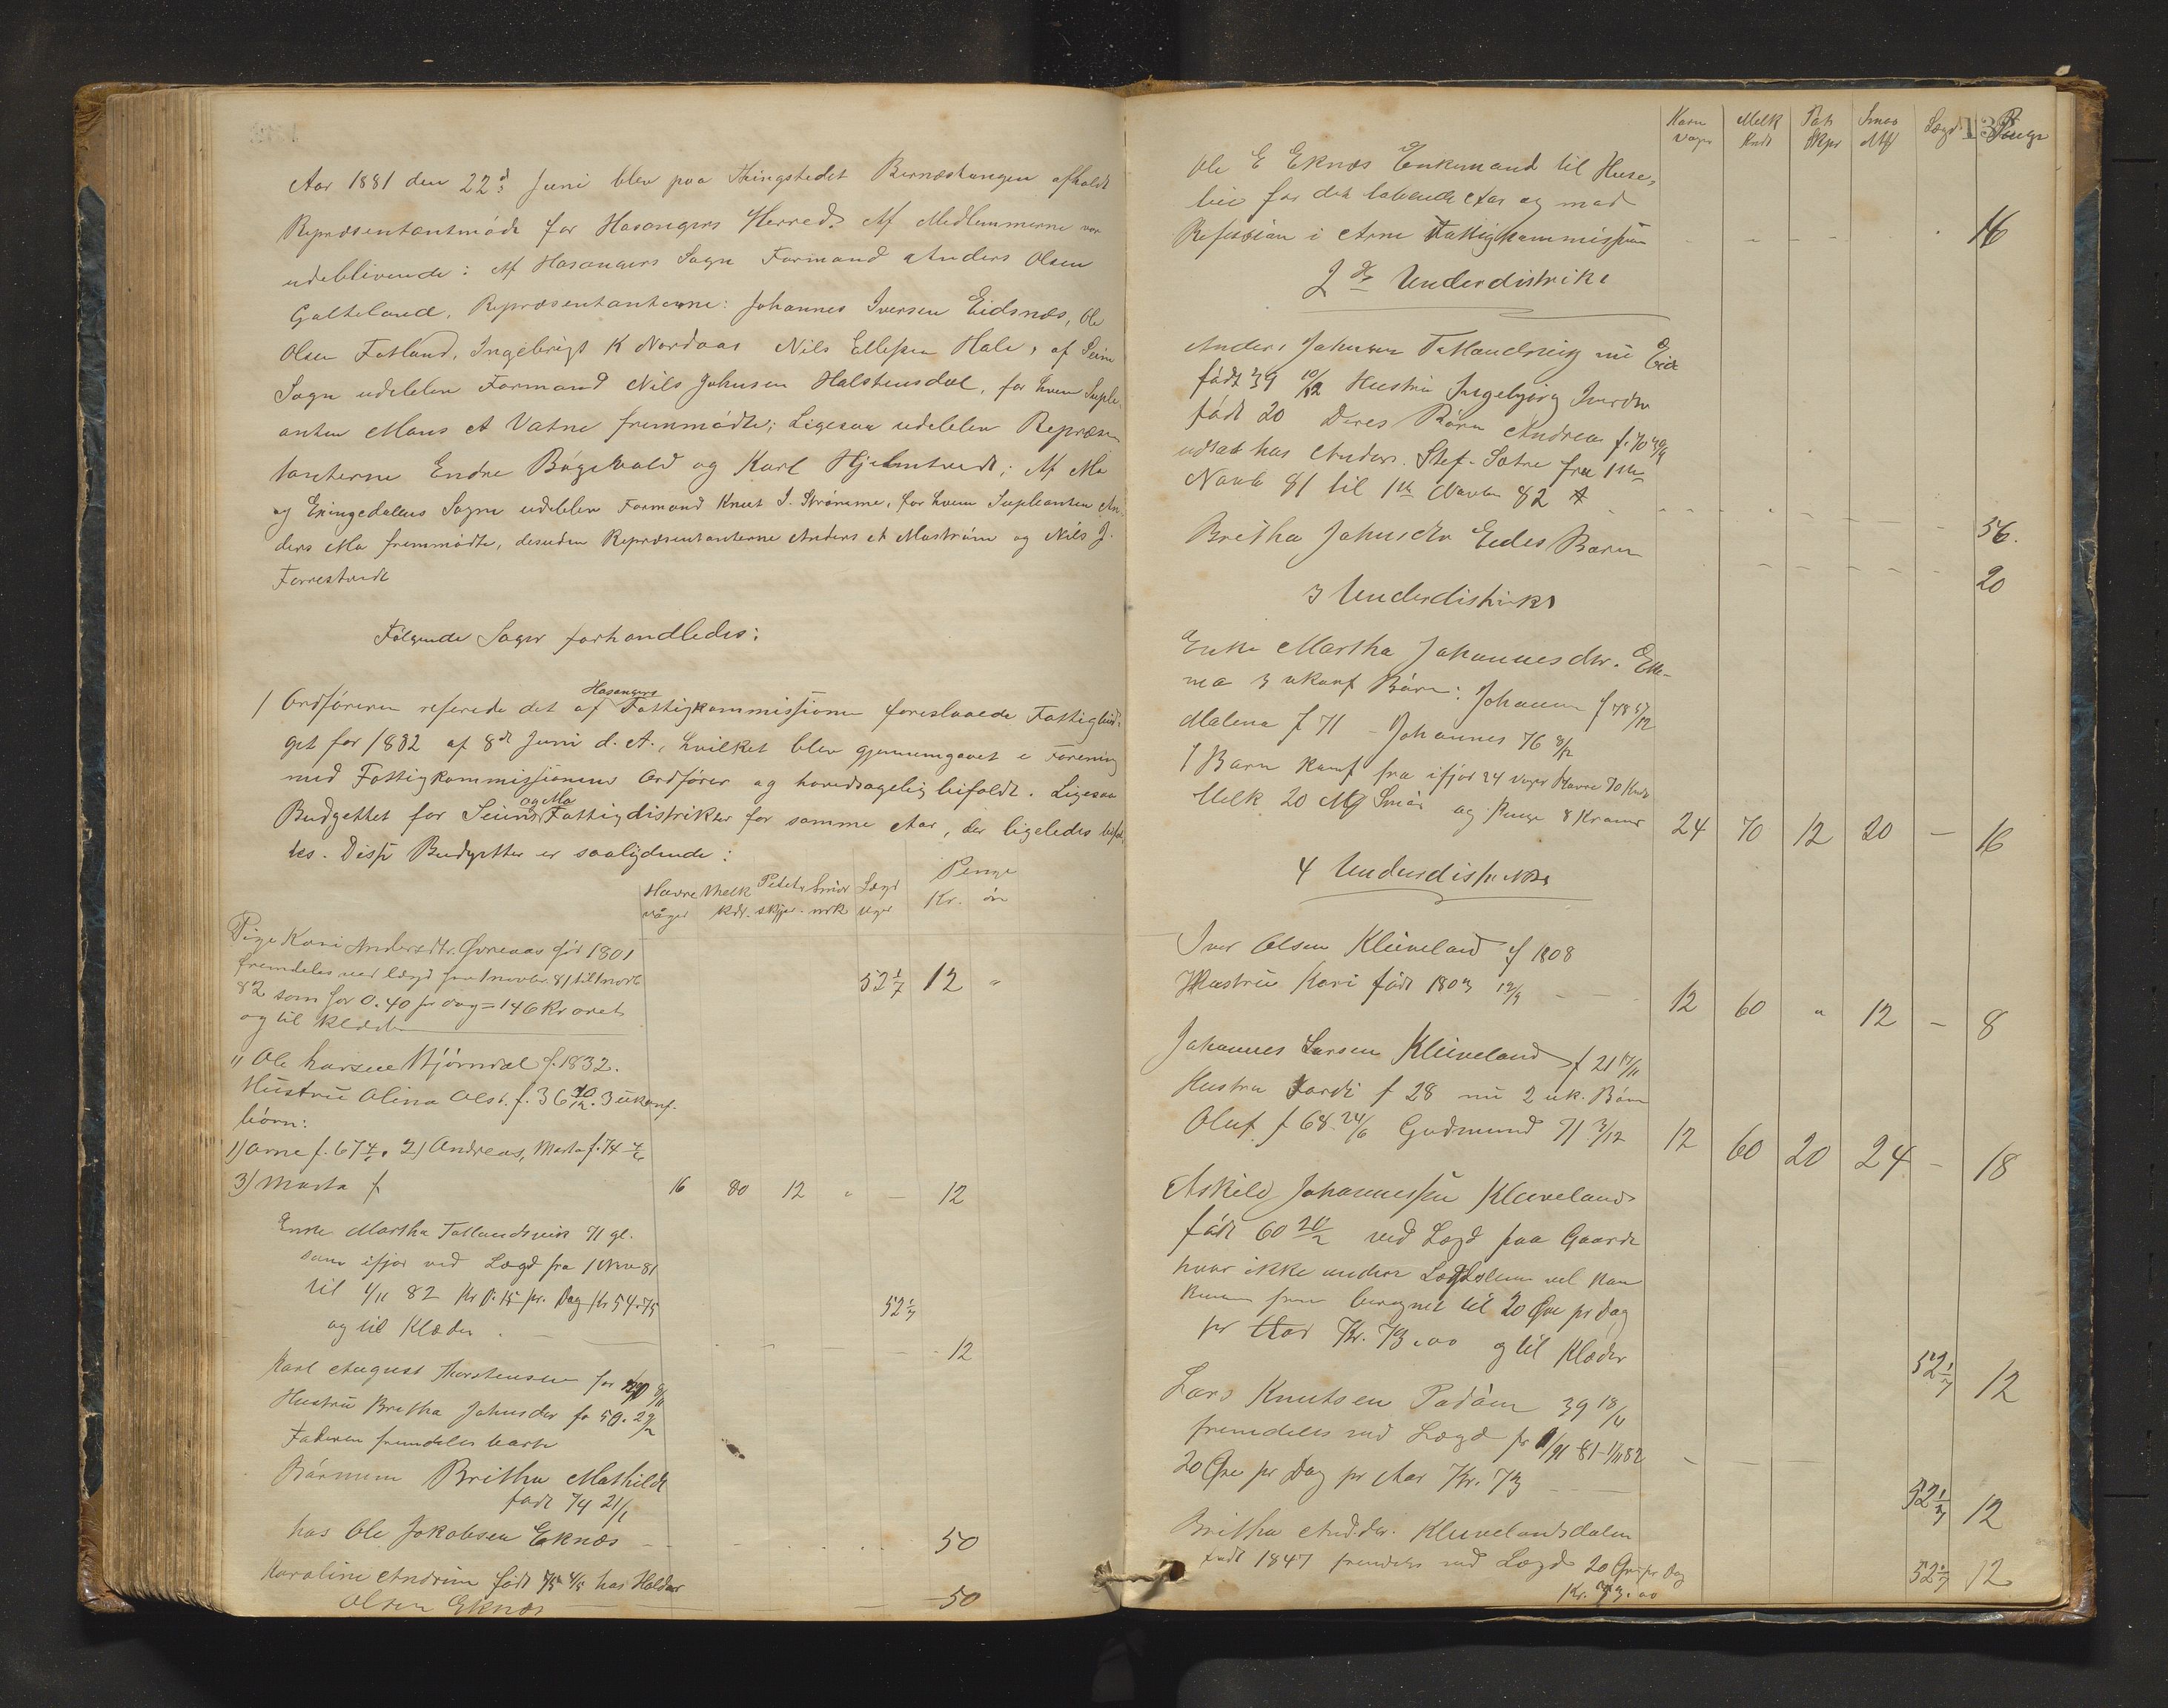 Aar 1881 den 22d Juni blev paa Thingstedet Bernæstangen afholdt
Repræsentantmöde for Hosangers Herred. Af Medlemmerne var
udeblivende: Af Hosangers Sogn Formand Anders Olsen
Galteland, Repræsentanterne: Johannes Iversen Eidsnæs, Ole
Olsen Fotland, Ingebrigt K Nordaas Nils Ellefsen Hole, af Seim
Sogn udeblev Formand Nils Johnsen Halstensdal, for hvem Suple-
anten Mons A Vatne fremmödte; Ligesaa udeblev Repræsen
tanterne Endre Bögevold og Karl Hjelmtvedt; Af Mo
og Exingedalens Sogn udeblev Formand Knut J. Strömme, for hvem Supleanten An-
ders Mo fremmödte, desuden Repræsentanterne Anders A Mostrám og Nils J.
Forrestvedt
Fölgende Sager forhandledes:
1 Ordföreren referede det af Hosangers Fattigkommissionen foreslaaede Fattigbud-
get for 1882 af 8de Juni d. A., hvilket blev gjennemgaaet i Forening
med Fattigkommissionens Ordförer og hovedsagelig bifaldt. Ligesaa
Budgettet for Seims og Mo Fattigdistrikter for samme Aar, der ligeledes bifald
tes. Disse Budgetter er saalydende:
Havre Melk Potet. Smör Lægd Penge
våger Kdr. skjpr. mrk Uger Kr. ör
Pige Kari Andersdtr. Övreaas föd 1801
fremdeles ved lægd fra 1 novbr. 81 til 1 novb
82 som för 0.40 pr dag = 146 Kr aret
og til klæder 52 1/7 12 "
" Ole Larsen Hjörndal f. 1832.
Hustru Olina Olsd. f. 36 10/12. 3 ukonf.
börn:
1) Arne f. 67 4/6. 2) Andreas, Marta f. 74
3) Marta f 16 80 12 " — 12
Enke Martha Totlandsvik 71 gl.
som ifjor ved Lægd fra 1 Nov 81
til 1/11 82 Kr 0.15 pr. Dag Kr 54.75 52 1/7
og til Klæder 12
Karl August Thorstensen
Hustru Britha Johnsdtr
Faderen fremdeles borte
Börnene Britha Mathilde
födt 74 21/1
hos Ole Jakobsen Eknæs 50
Karoline Andrine födt 75 4/5 hos Haldor
Olsen Eknæs 50
Korn Melk Pot. Smör Lægd Penge
Vager Knd Skpr Mk
Ole E Eknæs Enkemand til Huse-
leie for det løbende Aar og mod
Refusion i Arne Fattigkommission 16
2det Underdistrikt
Anders Johnsen Totlandsvig nu Eide
födt 39 10/12 Hustru Ingebjørg Iversdtr
födt 20 Deres Børn Andreas f. 70
udsat hos Anders Stef. Sætre fra 1ste
Novb 81 til 1ste Novbr 82 56.
Britha Johnsdtr Eides Barn 20
3 Underdistrikt
Enke Martha Johannesdtr. Eke-
nea 3 ukonf Börn: Johanne f 78
Malena f 71 - Johannes 76 8/12
1 Barn konf fra ifjor 24 Vager Havre 70 Kndr
Melk 20 Mk Smör og Penge 8 Kroner 24 70 12 20 — 16
4 Underdistrikt
Iver Olsen Kleiveland f 1808
Hustru Kari födt 1803 12/9 12 60 " 12 — 8
Johannes Larsen Kleiveland f 21 17/11
Hustru f 28 nu 2 uk. Börn
Oluf f 68. 24/6 Gudmund 71 3/12 12 60 20 24 — 18
Askild Johannessen Kleveland
födt 60 20/2 ved Lægd paa Gaarde
hvor ikke anden Lægdslem vel kan
komme frem beregnet til 20 Öre pr Dag
pr Aar Kr. 73.00 og til Klæder 52 1/7 12
Lars Knutsen Padöen 39 18/4
fremdeles ved Lægd fr 1/11 81 - 1/11 82
20 Öre pr Dag pr Aar Kr. 73 52 1/7 12
Britha And.dtr. Kleivelandsdalen
født 1847 fremdeles ved Lægd 20 Öre pr Dag
Kr. 73.00 52 1/7 12